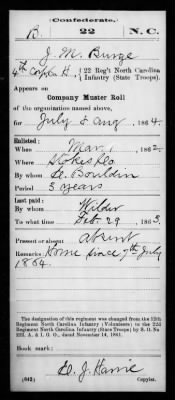 Confederate.
B. 22 N.C.
J. M. Burge
4th Corp, Co. H, 22 Reg't North Carolina
Infantry (State Troops).
Appears on
Company Muster Roll
of the organization named above,
for July & Aug, 1864.
Enlisted:
When Mar, 1862
Where Stokes Co
By whom
Period 3 years
Last paid:
By whom Wilder
To what time Feb. 29, 1863.
Present or absent absent
Remarks: Home since 7th July
1864.
The designation of this regiment was changed from the 12th
Regiment North Carolina Infantry (Volunteers) to the 22d
Regiment North Carolina Infantry (State Troops) by S. O. No.
222, A. & I. G. O., dated November 14, 1861.
Book mark:
(642)
Copyist.